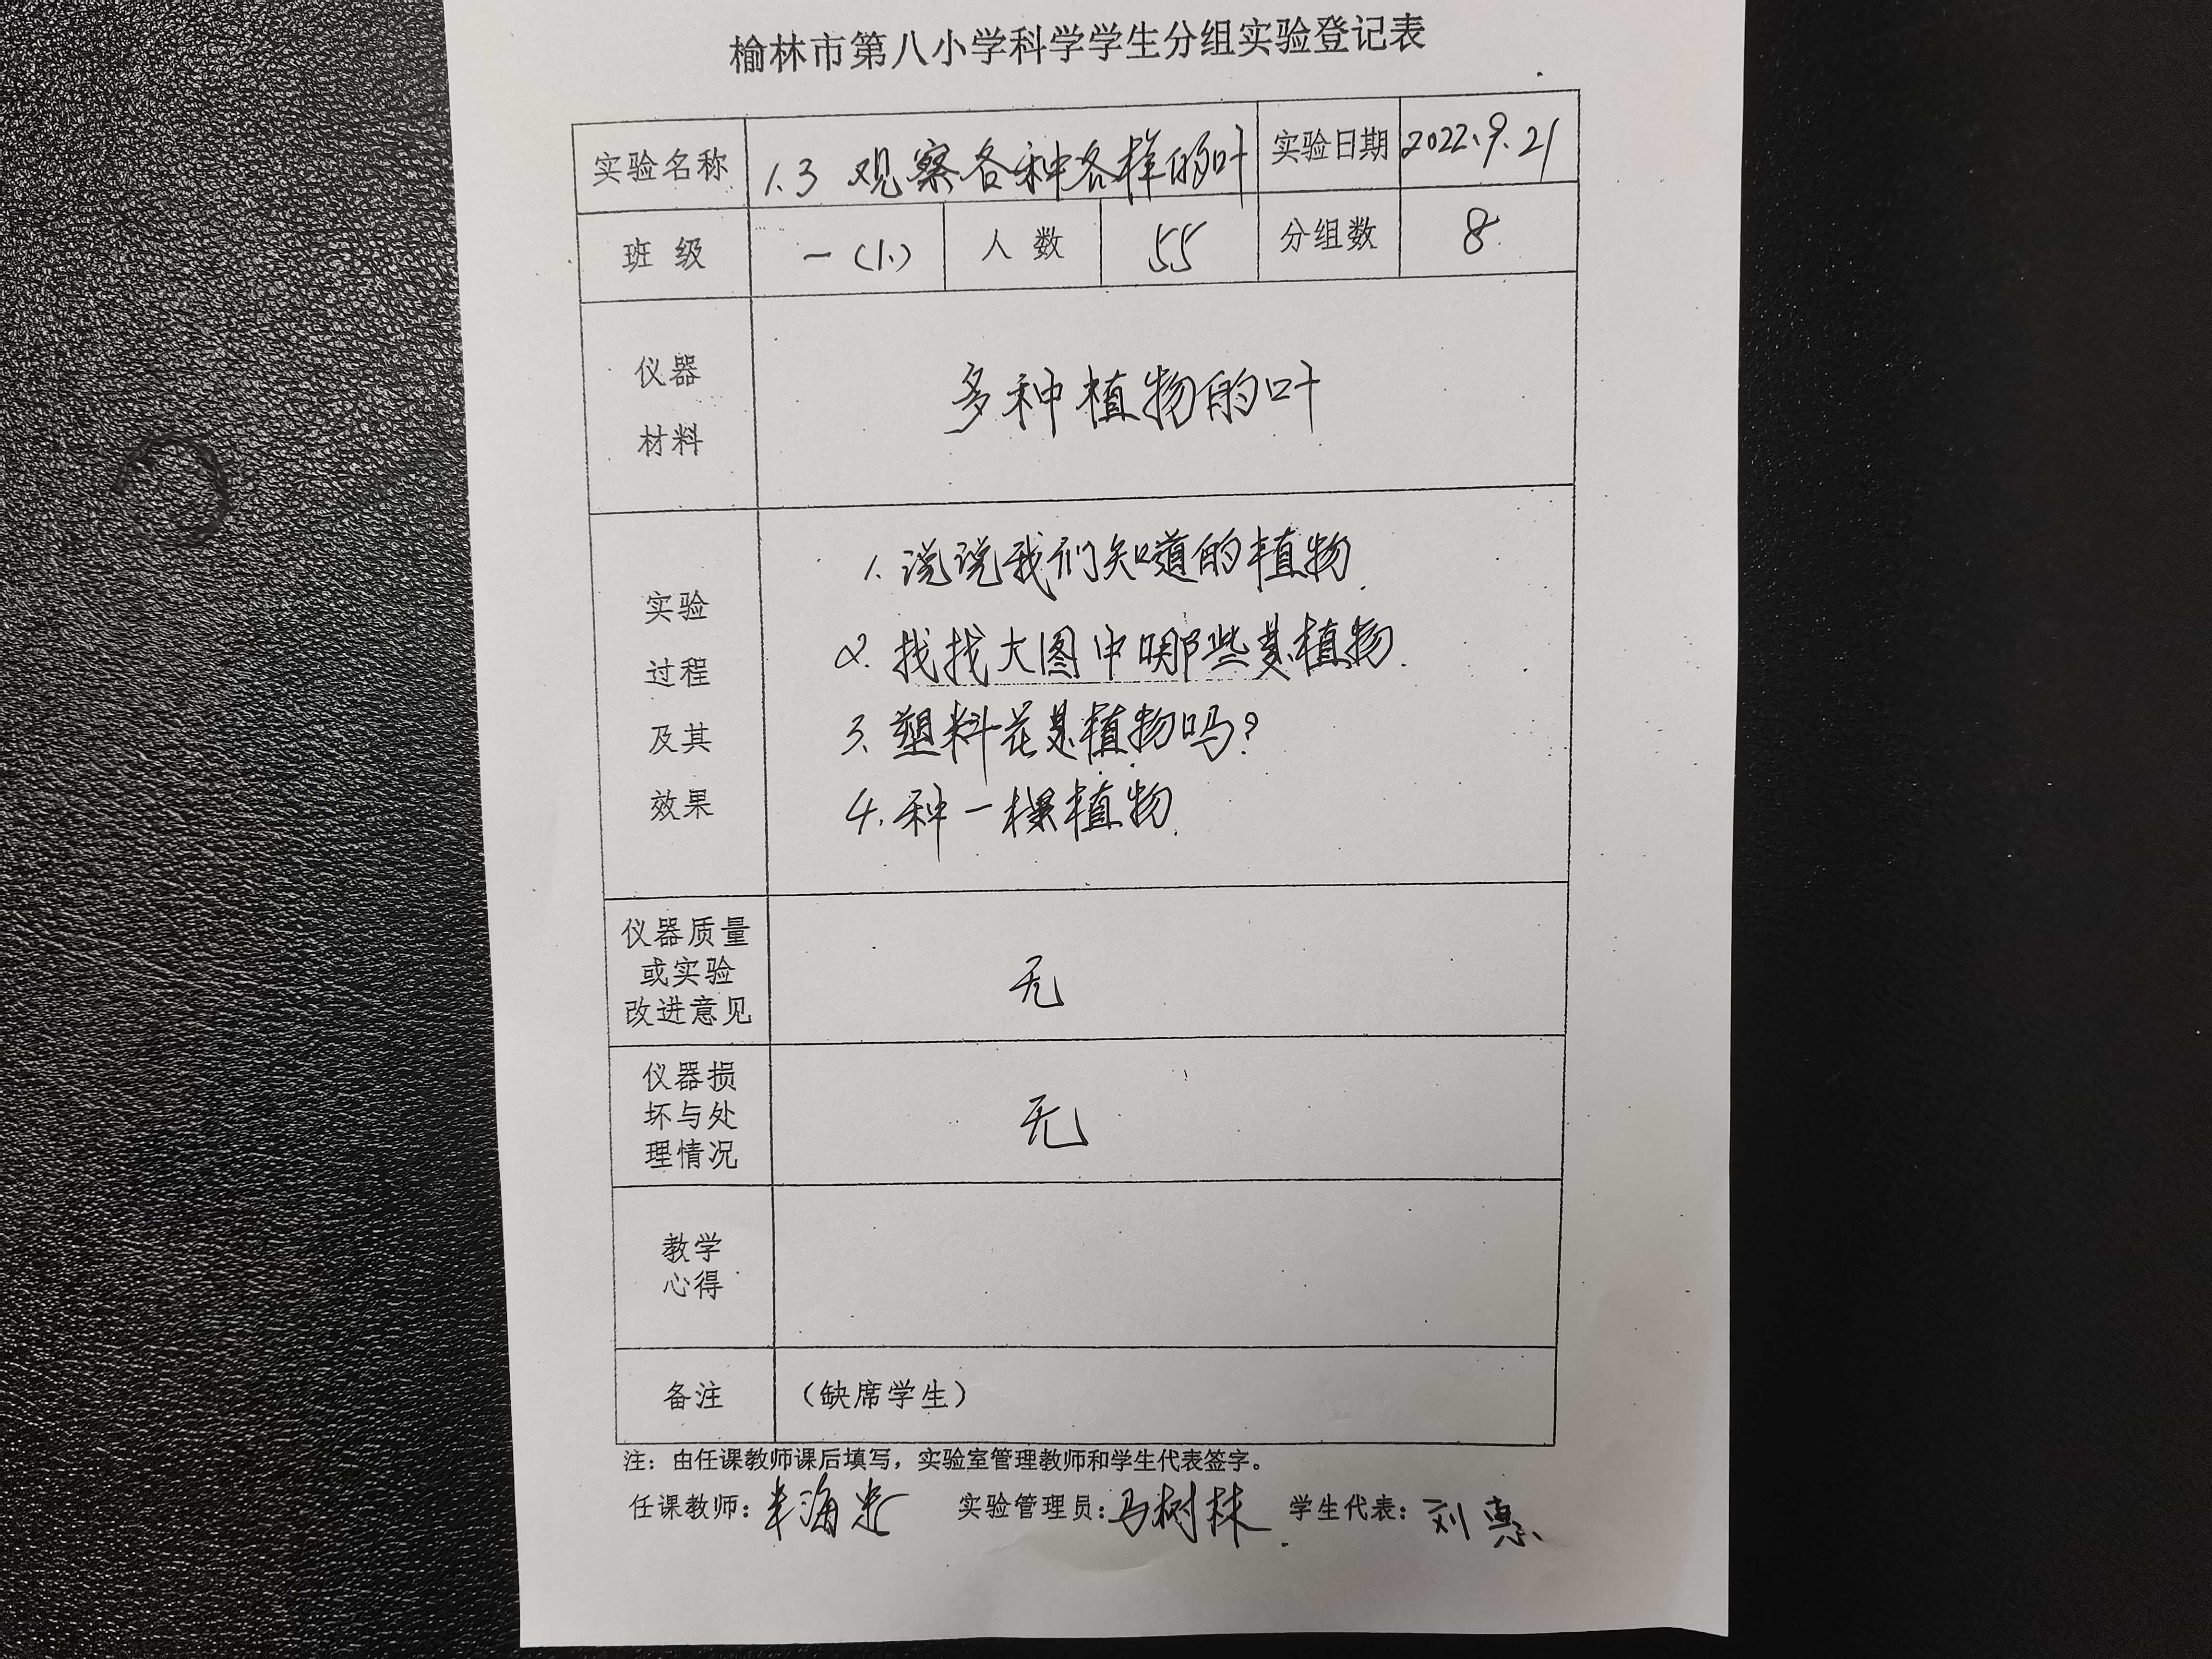 榆林市第八小学科学学生分组实验登记表
实验名称 1.3 观察各种各样的叶 实验日期 2022.9.21
班 级 一(1.) 人 数 55 分组数 8
仪器
材料
多种植物的叶
实验
过程
及其
效果
1. 说说我们知道的植物.
2. 找找大图中哪些是植物.
3. 塑料花是植物吗?
4. 种一棵植物.
仪器质量
或实验
改进意见
无
仪器损
坏与处
理情况
无
教学
心得
备注 （缺席学生）
注：由任课教师课后填写，实验室管理教师和学生代表签字。
任课教师： 实验管理员：马树林 学生代表：刘惠